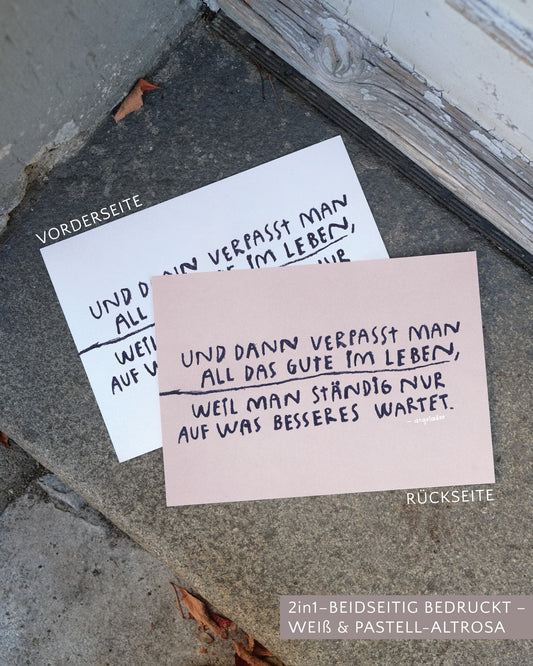 VORDERSEITE
UND DANN VERPASST MAN
ALL GUTE IM LEBEN,
WEIL NUR
AUF
UND DANN VERPASST MAN
ALL DAS GUTE IM LEBEN,
WEIL MAN STÄNDIG NUR
AUF WAS BESSERES WARTET.
RÜCKSEITE
2in1–BEIDSEITIG BEDRUCKT –
WEIß & PASTELL-ALTROSA